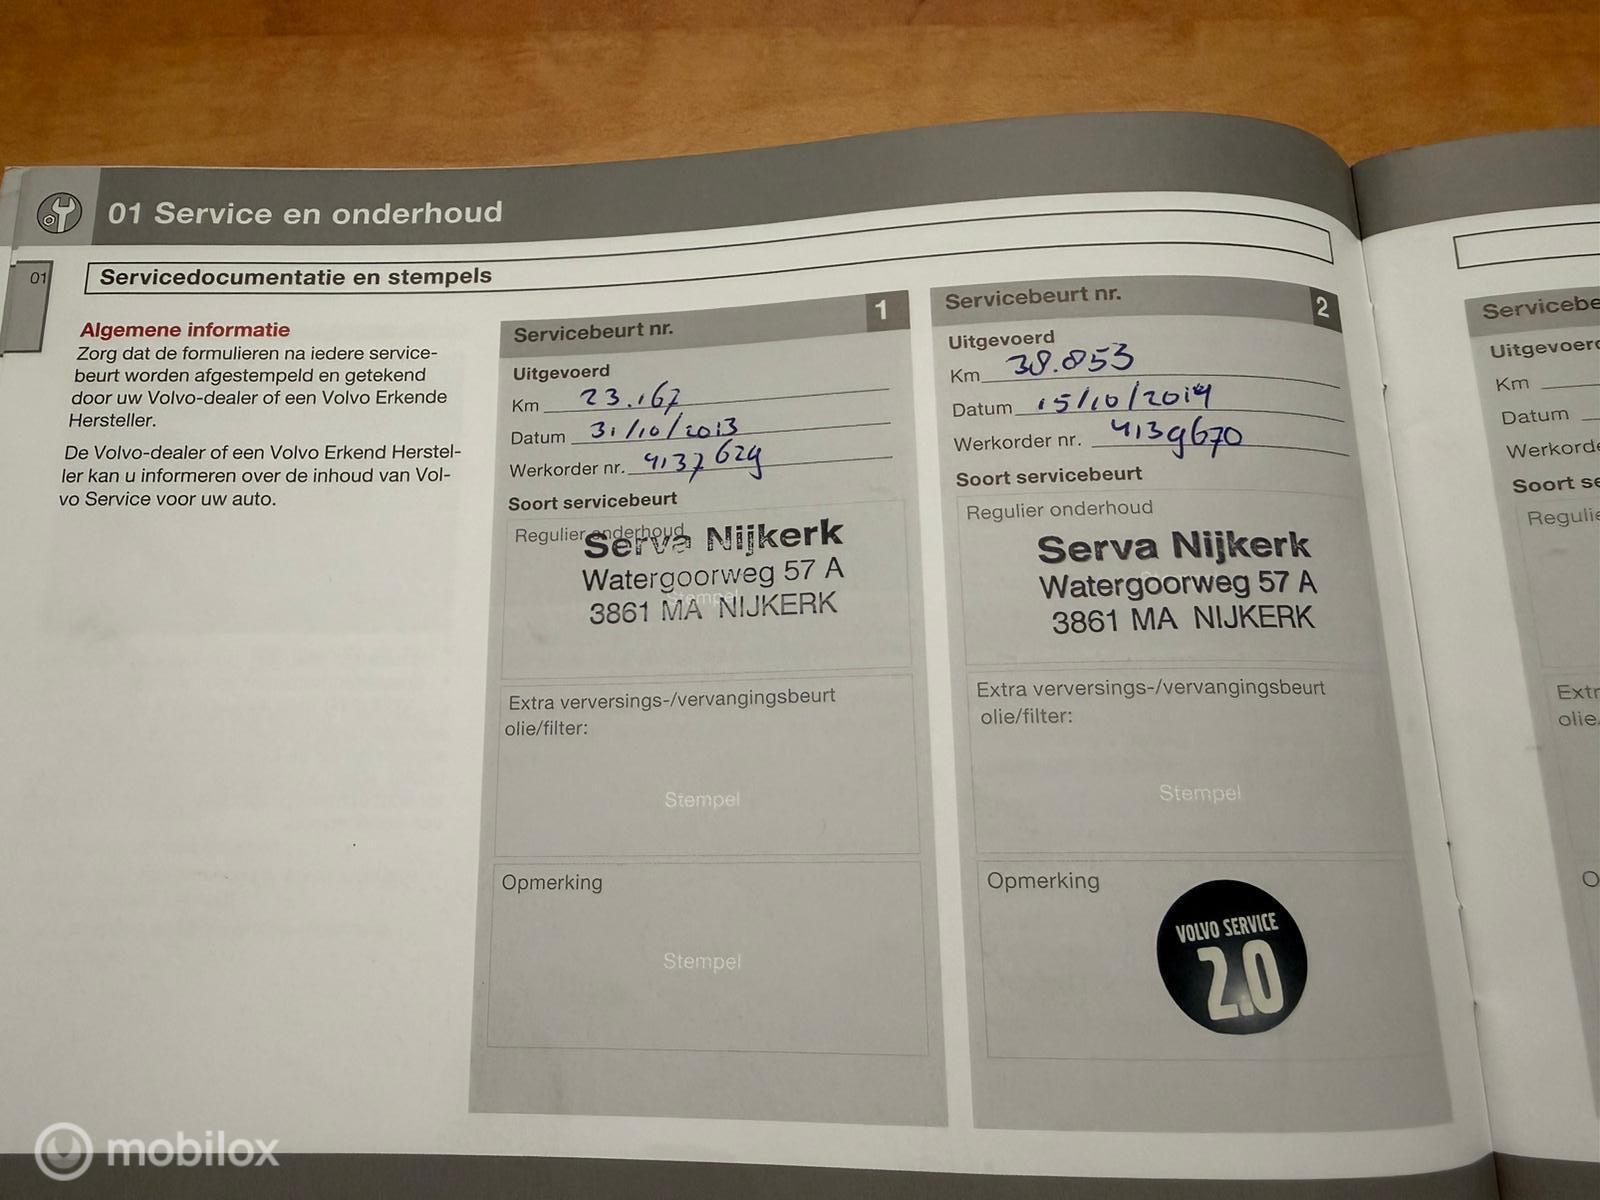 01 Service en onderhoud
01
Servicedocumentatie en stempels
Algemene informatie
Zorg dat de formulieren na iedere service-
beurt worden afgestempeld en getekend
door uw Volvo-dealer of een Volvo Erkende
Hersteller.
De Volvo-dealer of een Volvo Erkend Herstel-
ler kan u informeren over de inhoud van Vol-
vo Service voor uw auto.
Servicebeurt nr. 1
Uitgevoerd
Km 23.167
Datum 31/10/2013
Werkorder nr. 4137629
Soort servicebeurt
Regulier onderhoud
Serva Nijkerk
Watergoorweg 57 A
Stempel
3861 MA NIJKERK
Extra verversings-/vervangingsbeurt
olie/filter:
Stempel
Opmerking
Stempel
Servicebeurt nr. 2
Uitgevoerd
Km 38.853
Datum 15/10/2014
Werkorder nr. 4139670
Soort servicebeurt
Regulier onderhoud
Serva Nijkerk
Watergoorweg 57 A
3861 MA NIJKERK
Extra verversings-/vervangingsbeurt
olie/filter:
Stempel
Opmerking
VOLVO SERVICE
2.0
Servicebe
Uitgevoerd
Km
Datum
Werkorde
Soort se
Regulie
Extr
olie
O
mobilox